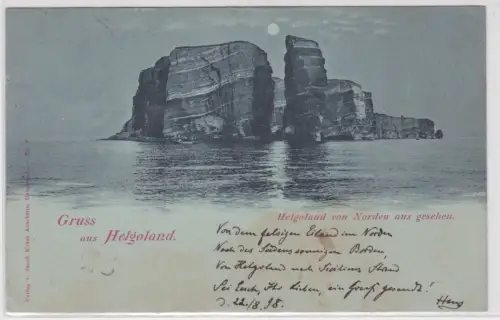 Helgoland von Norden aus gesehen.
Gruss
aus Helgoland.
Von dem felsigen Eiland im Norden
Nach des Südens sonnigen Borden,
Von Helgoland nach Siciliens Strand
Sei Euch, Ihr Lieben, ein Gruß gesandt!
d. 22/8. 98. Hans
Verlag v.